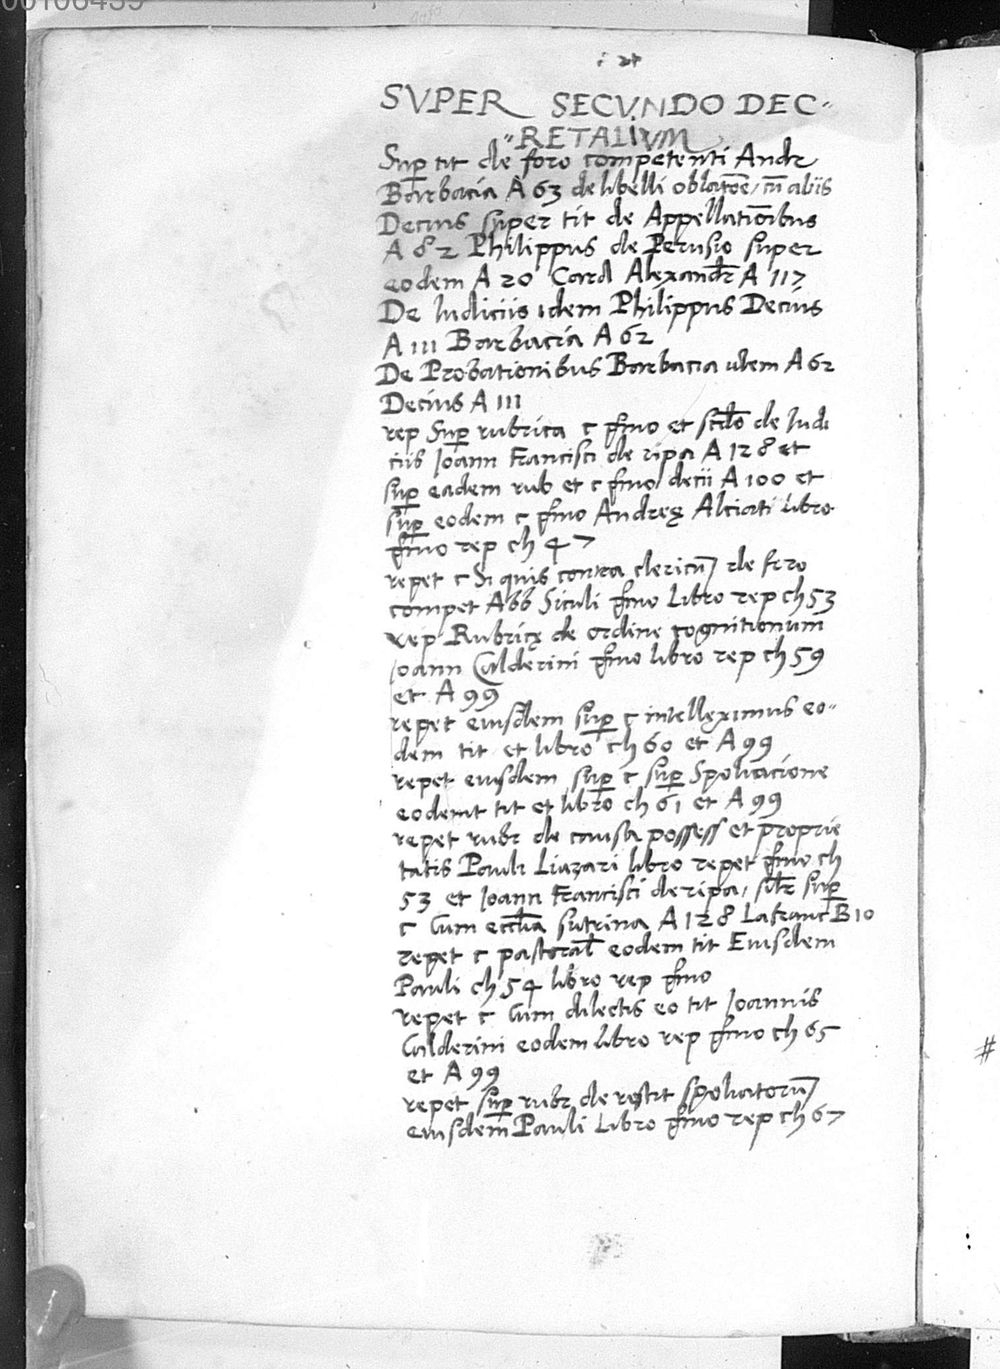 00106439
SVPER SECVNDO DEC-
-RETALIVM
Sup tit de foro competenti Andr
Barbacia A 63 de libelli oblatōe, cū aliis
Decius super tit de Appellatiōibus
A 82 Philippus de Perusio super
eodem A 20 Card Alexandr A 117
De Iudiciis idem Philippus Decius
A 111 Barbacia A 62
De Probationibus Barbacia idem A 62
Decius A 111
rep Sup rubrica c pmo et scdo de Iudi
ciis Joann Francisci de ripa A 128 et
sup eadem rub et c pmo decii A 100 et
sup eodem c pmo Andreę Alciati Libro
pmo rep ch 47
repet c Si quis contra clericū de foro
compet Abb Siculi pmo Libro rep ch 53
rep Rubricę de ordine cognitionum
Joann Calderini pmo libro rep ch 59
et A 99
repet eiusdem sup c intelleximus eo-
dem tit et libro ch 60 et A 99
repet eiusdem sup c sup Spoliacione
eodem tit et libro ch 61 et A 99
repet rubr de causa possess et proprie
tatis Pauli Liazari libro repet pmo ch
53 et Joann Francisci de ripa, sup
c Cum ecclīa sutrina A 128 Lafranc B 10
repet c pastoral eodem tit Eiusdem
Pauli ch 54 libro rep pmo
repet c Cum dilectis eo tit Joannis
Calderini eodem libro rep pmo ch 65
et A 99
repet sup rubr de restit spoliatorū
eiusdem Pauli Libro pmo rep ch 67
#